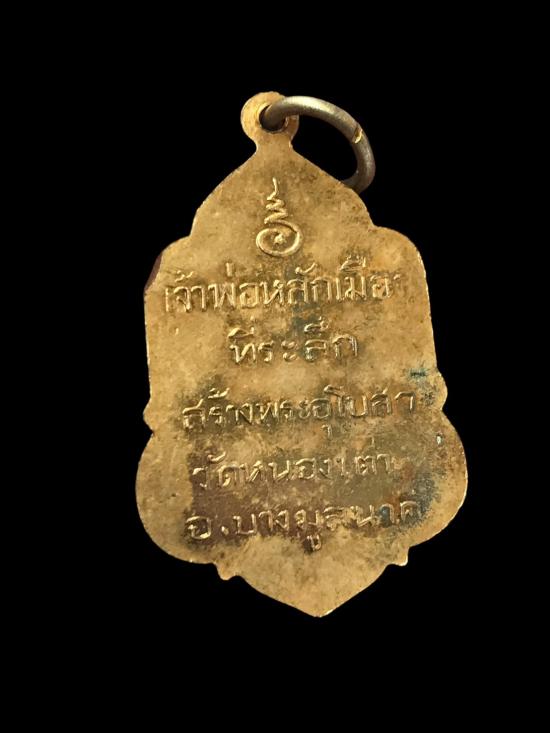 เจ้าพ่อหลักเมือง
ที่ระลึก
สร้างพระอุโบสถ
วัดหนองเต่า
อ.บางมูลนาค